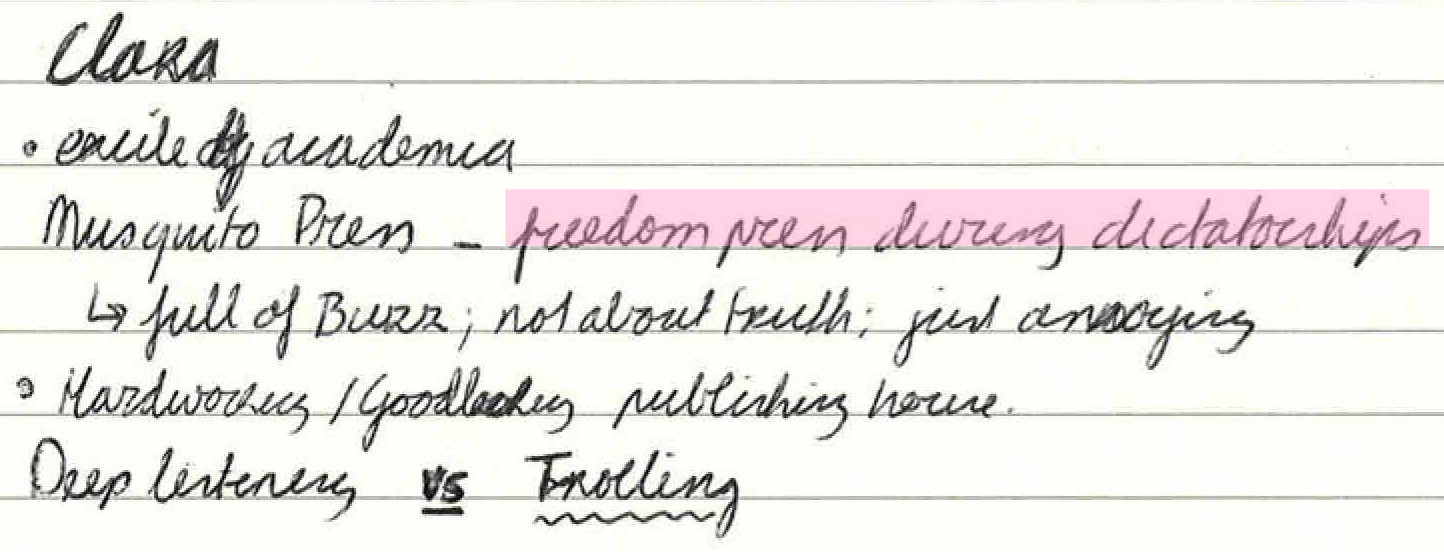 Clara
• exile of academia
Musquito Press – freedom press during dictatorships
↳ full of Buzz; not about truth; just annoying
• Hardworking / Goodlooking publishing house.
Deep listening vs Trolling